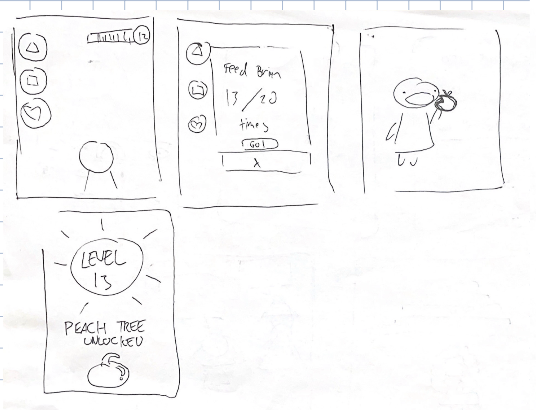 12
Feed Brian
13/20
times
GO!
X
LEVEL
13
PEACH TREE
UNLOCKED